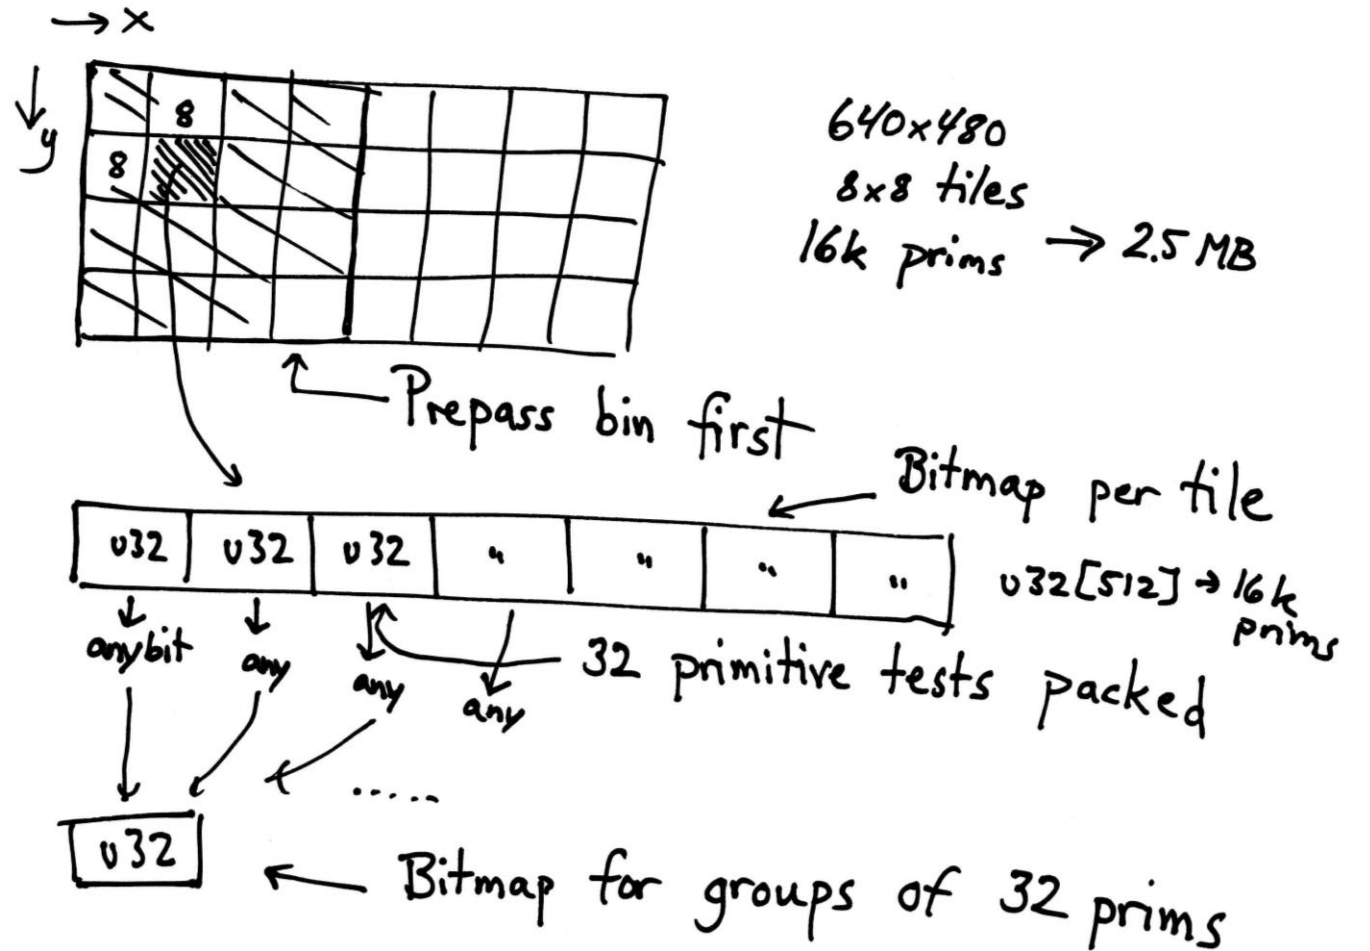 → x
↓ y
8
8
640x480
8x8 tiles
16k prims → 2.5 MB
Prepass bin first
Bitmap per tile
u32 u32 u32 " " " "
u32[512] → 16k prims
anybit any any any
32 primitive tests packed
.....
u32
Bitmap for groups of 32 prims